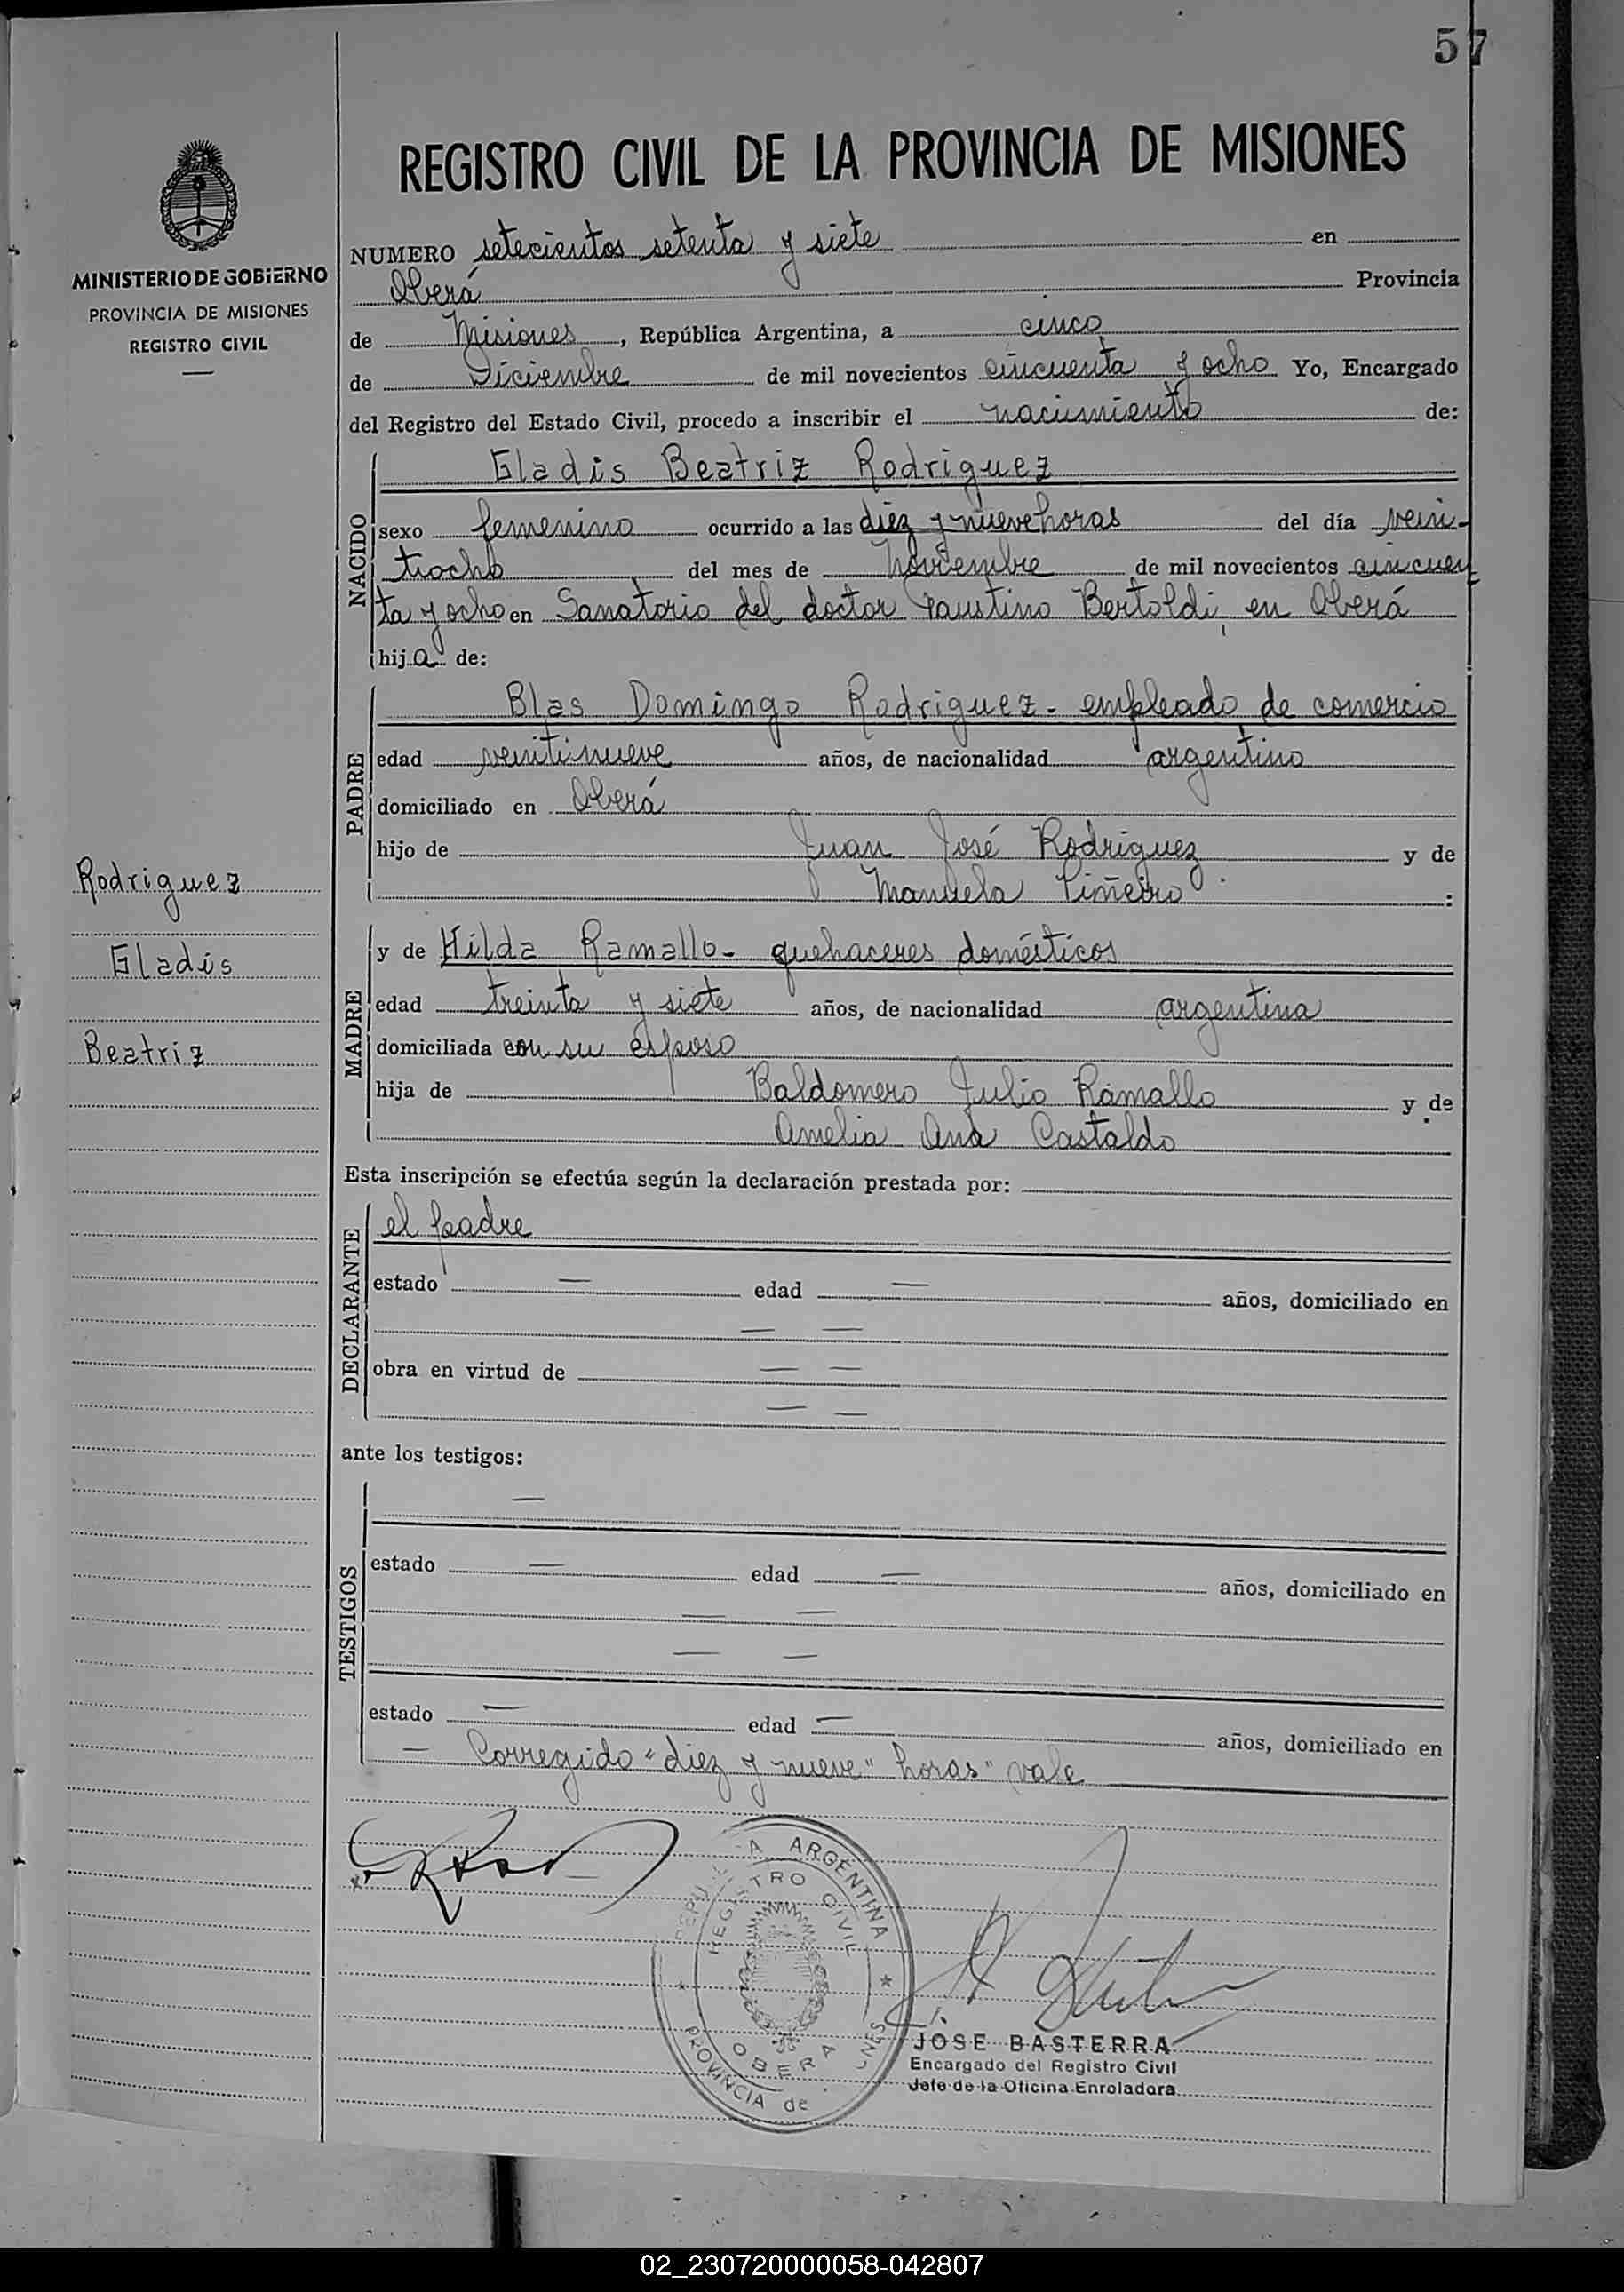 57
REGISTRO CIVIL DE LA PROVINCIA DE MISIONES
MINISTERIO DE GOBIERNO
PROVINCIA DE MISIONES
REGISTRO CIVIL
NUMERO setecientos setenta y siete en
Oberá Provincia
de Misiones, República Argentina, a cinco
de Diciembre de mil novecientos cincuenta y ocho Yo, Encargado
del Registro del Estado Civil, procedo a inscribir el nacimiento de:
NACIDO
Gladis Beatriz Rodriguez
sexo femenino ocurrido a las diez y nueve horas del día vein-
tiocho del mes de Noviembre de mil novecientos cincuen
ta y ocho en Sanatorio del doctor Faustino Bertoldi, en Oberá
hija de:
PADRE
Blas Domingo Rodriguez - empleado de comercio
edad veintinueve años, de nacionalidad argentino
domiciliado en Oberá
hijo de Juan José Rodriguez y de
Manuela Piñeiro :
Rodriguez
Gladis
Beatriz
MADRE
y de Hilda Ramallo - quehaceres domésticos
edad treinta y siete años, de nacionalidad argentina
domiciliada con su esposo
hija de Baldomero Julio Ramallo y de
Amelia Ana Castaldo
Esta inscripción se efectúa según la declaración prestada por:
DECLARANTE
el padre
estado — edad — años, domiciliado en
— —
obra en virtud de — —
— —
ante los testigos:
TESTIGOS
—
estado — edad — años, domiciliado en
— —
— —
estado — edad — años, domiciliado en
— Corregido "diez y nueve" horas" vale
ARGENTINA
REGISTRO CIVIL
OBERA
PROVINCIA de
JOSE BASTERRA
Encargado del Registro Civil
Jefe de la Oficina Enroladora
02_230720000058-042807